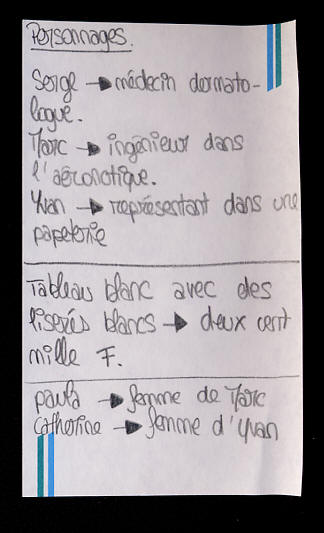 Personnages.
Serge → médecin dermato-
logue.
Marc → ingénieur dans
l'aéronotique.
Yvan → représentant dans une
papeterie
Tableau blanc avec des
liserés blancs → deux cent
mille F.
paula → femme de Marc
catherine → femme d'Yvan